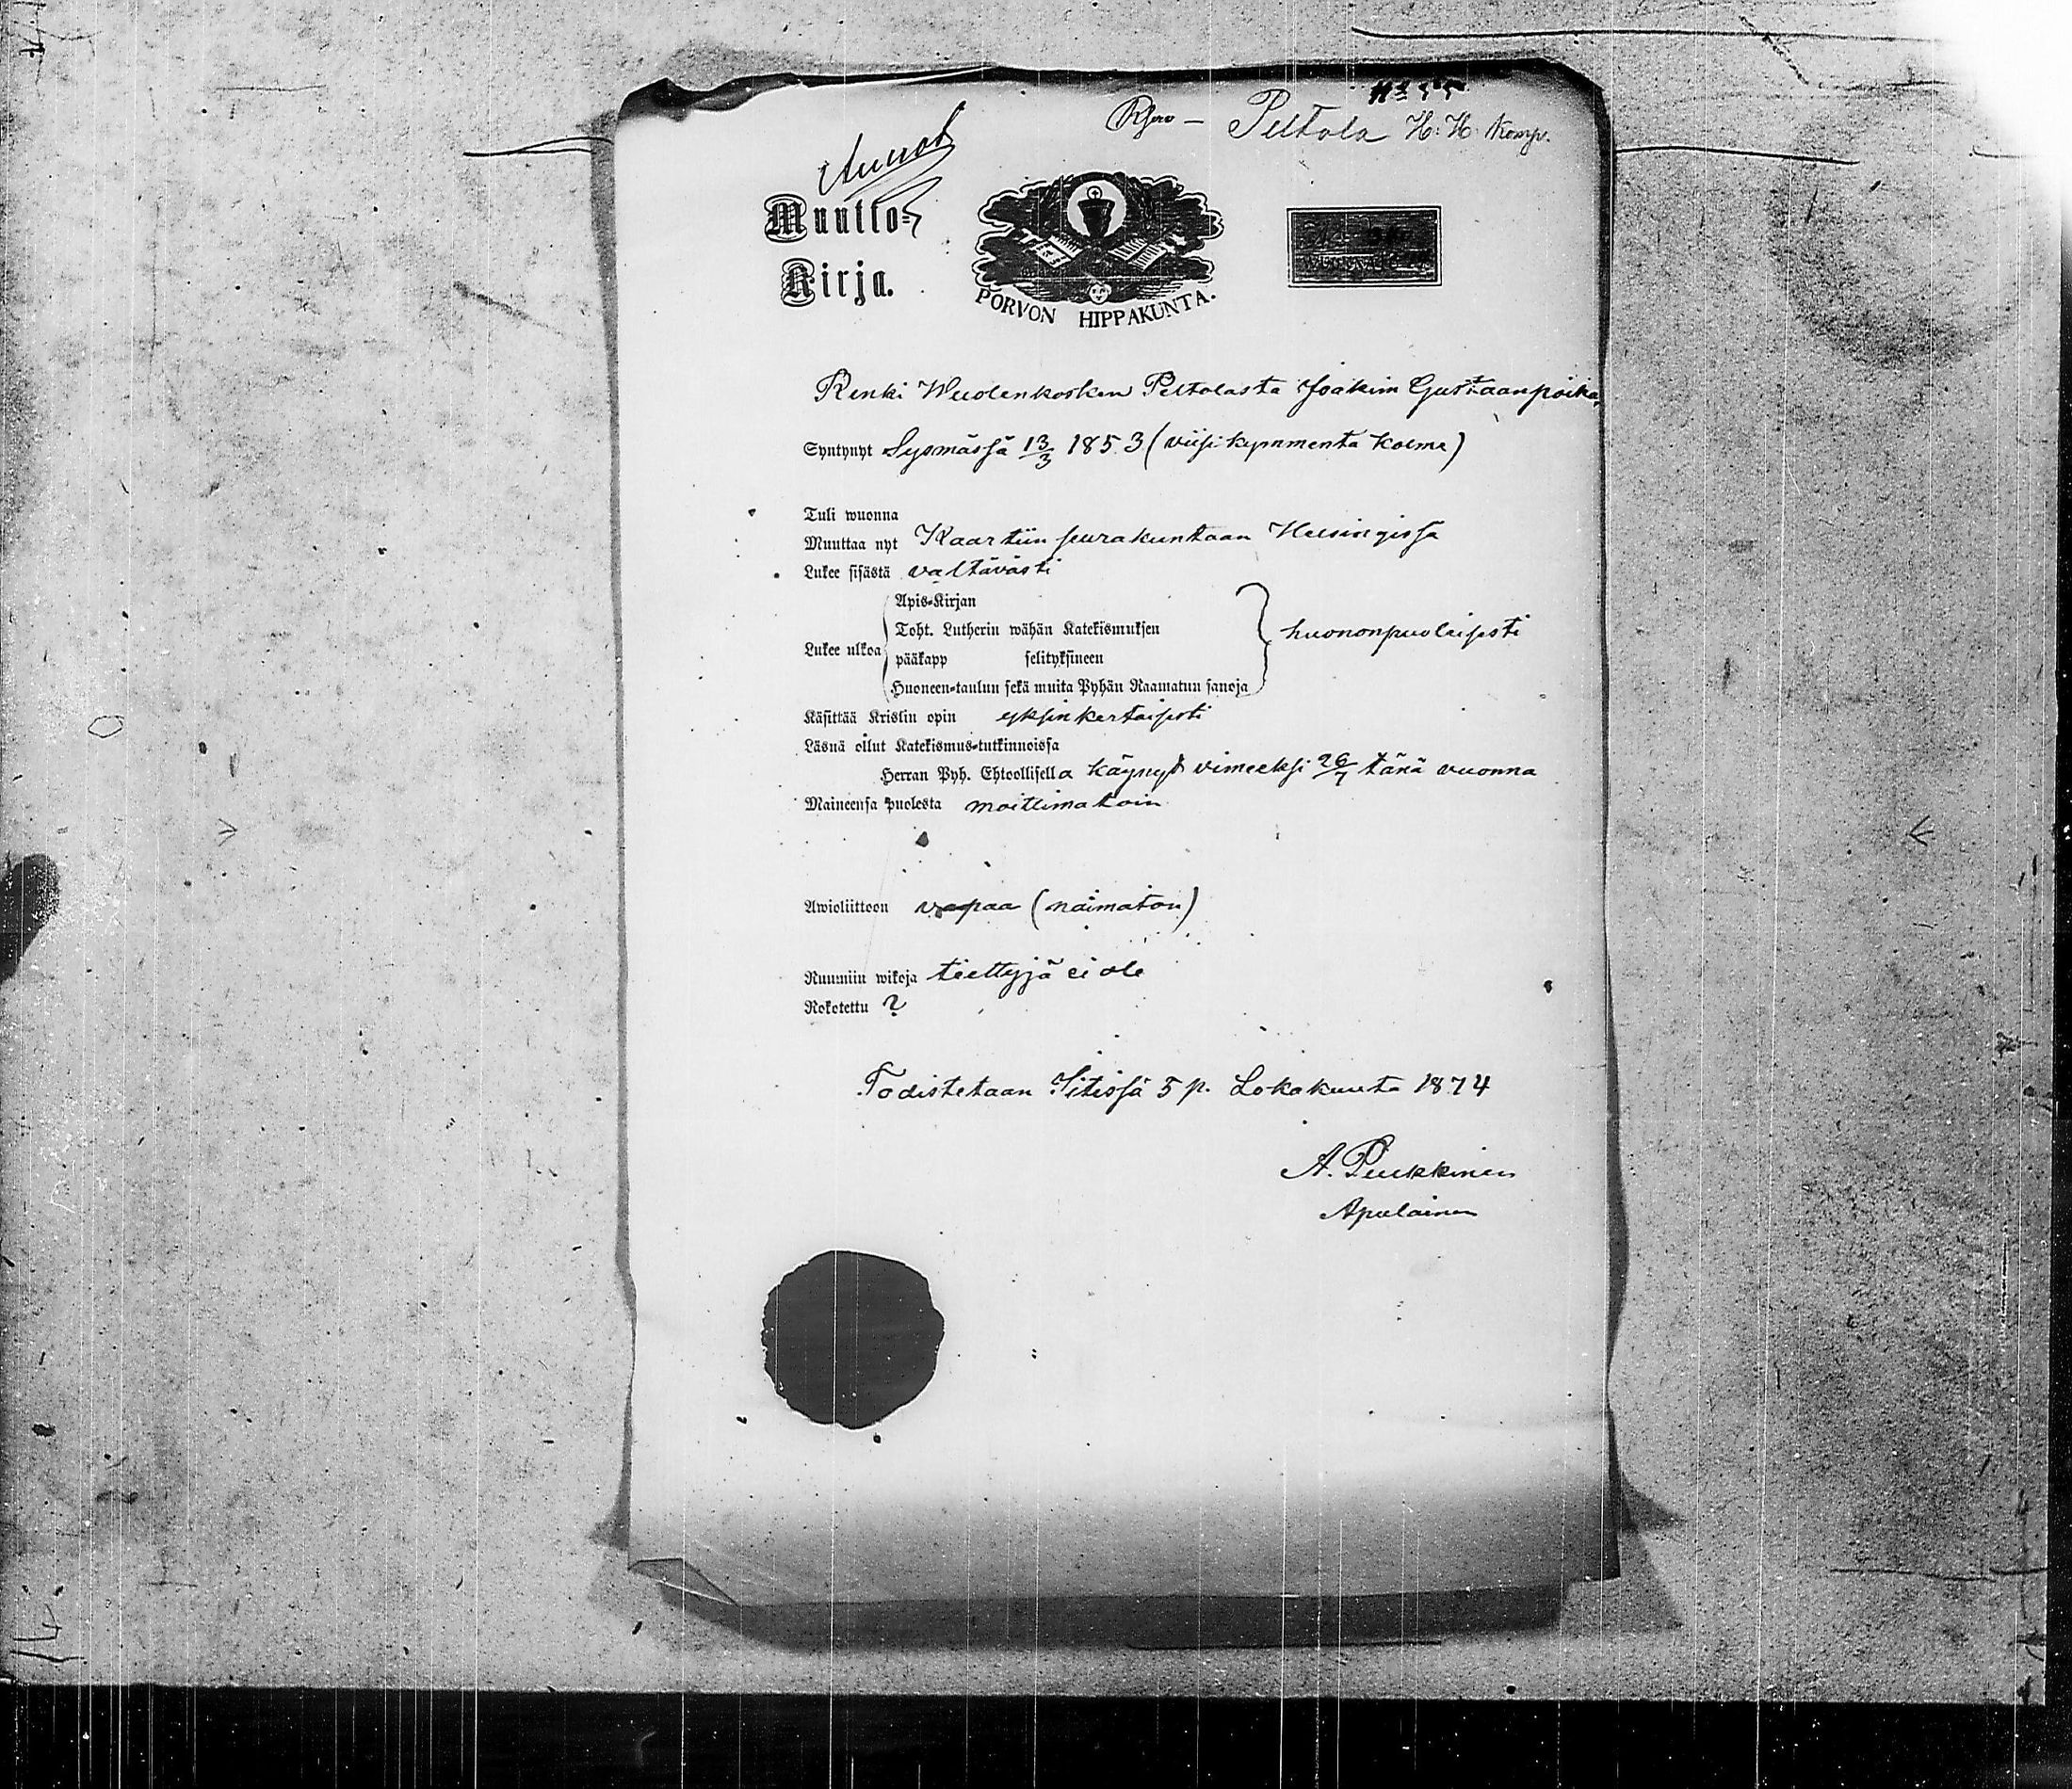 № 55
Peltola H: H: Komp.
Muutto=
Kirja.
PORVON HIPPAKUNTA.
Renki Wuolenkosken Peltolasta Joakim Gustaanpoika,
Syntynyt Sysmässä 13/3 1853 (viisikymmentä kolme)
Tuli wuonna
Muuttaa nyt Kaartiin seurakuntaan Helsingissä
Lukee sisästä valtävästi
Apis=Kirjan
Toht. Lutherin wähän Katekismuksen
Lukee ulkoa huononpuoleisesti
pääkapp selityksineen
Huoneen=taulun sekä muita Pyhän Raamatun sanoja
Käsittää Kristin opin yksinkertaisesti
Läsnä ollut Katekismus=tutkinnoissa
Herran Pyh. Ehtoollisella käynyt vimeeksi 26/7 tänä vuonna
Maineensa puolesta moittimatoin
Awioliittoon vapaa (naimaton)
Ruumiin wikoja tiettyjä ei ole
Rokotettu ?
Todistetaan Iitissä 5 p. Lokakuuta 1874
A. Pukkinen
Apulainen